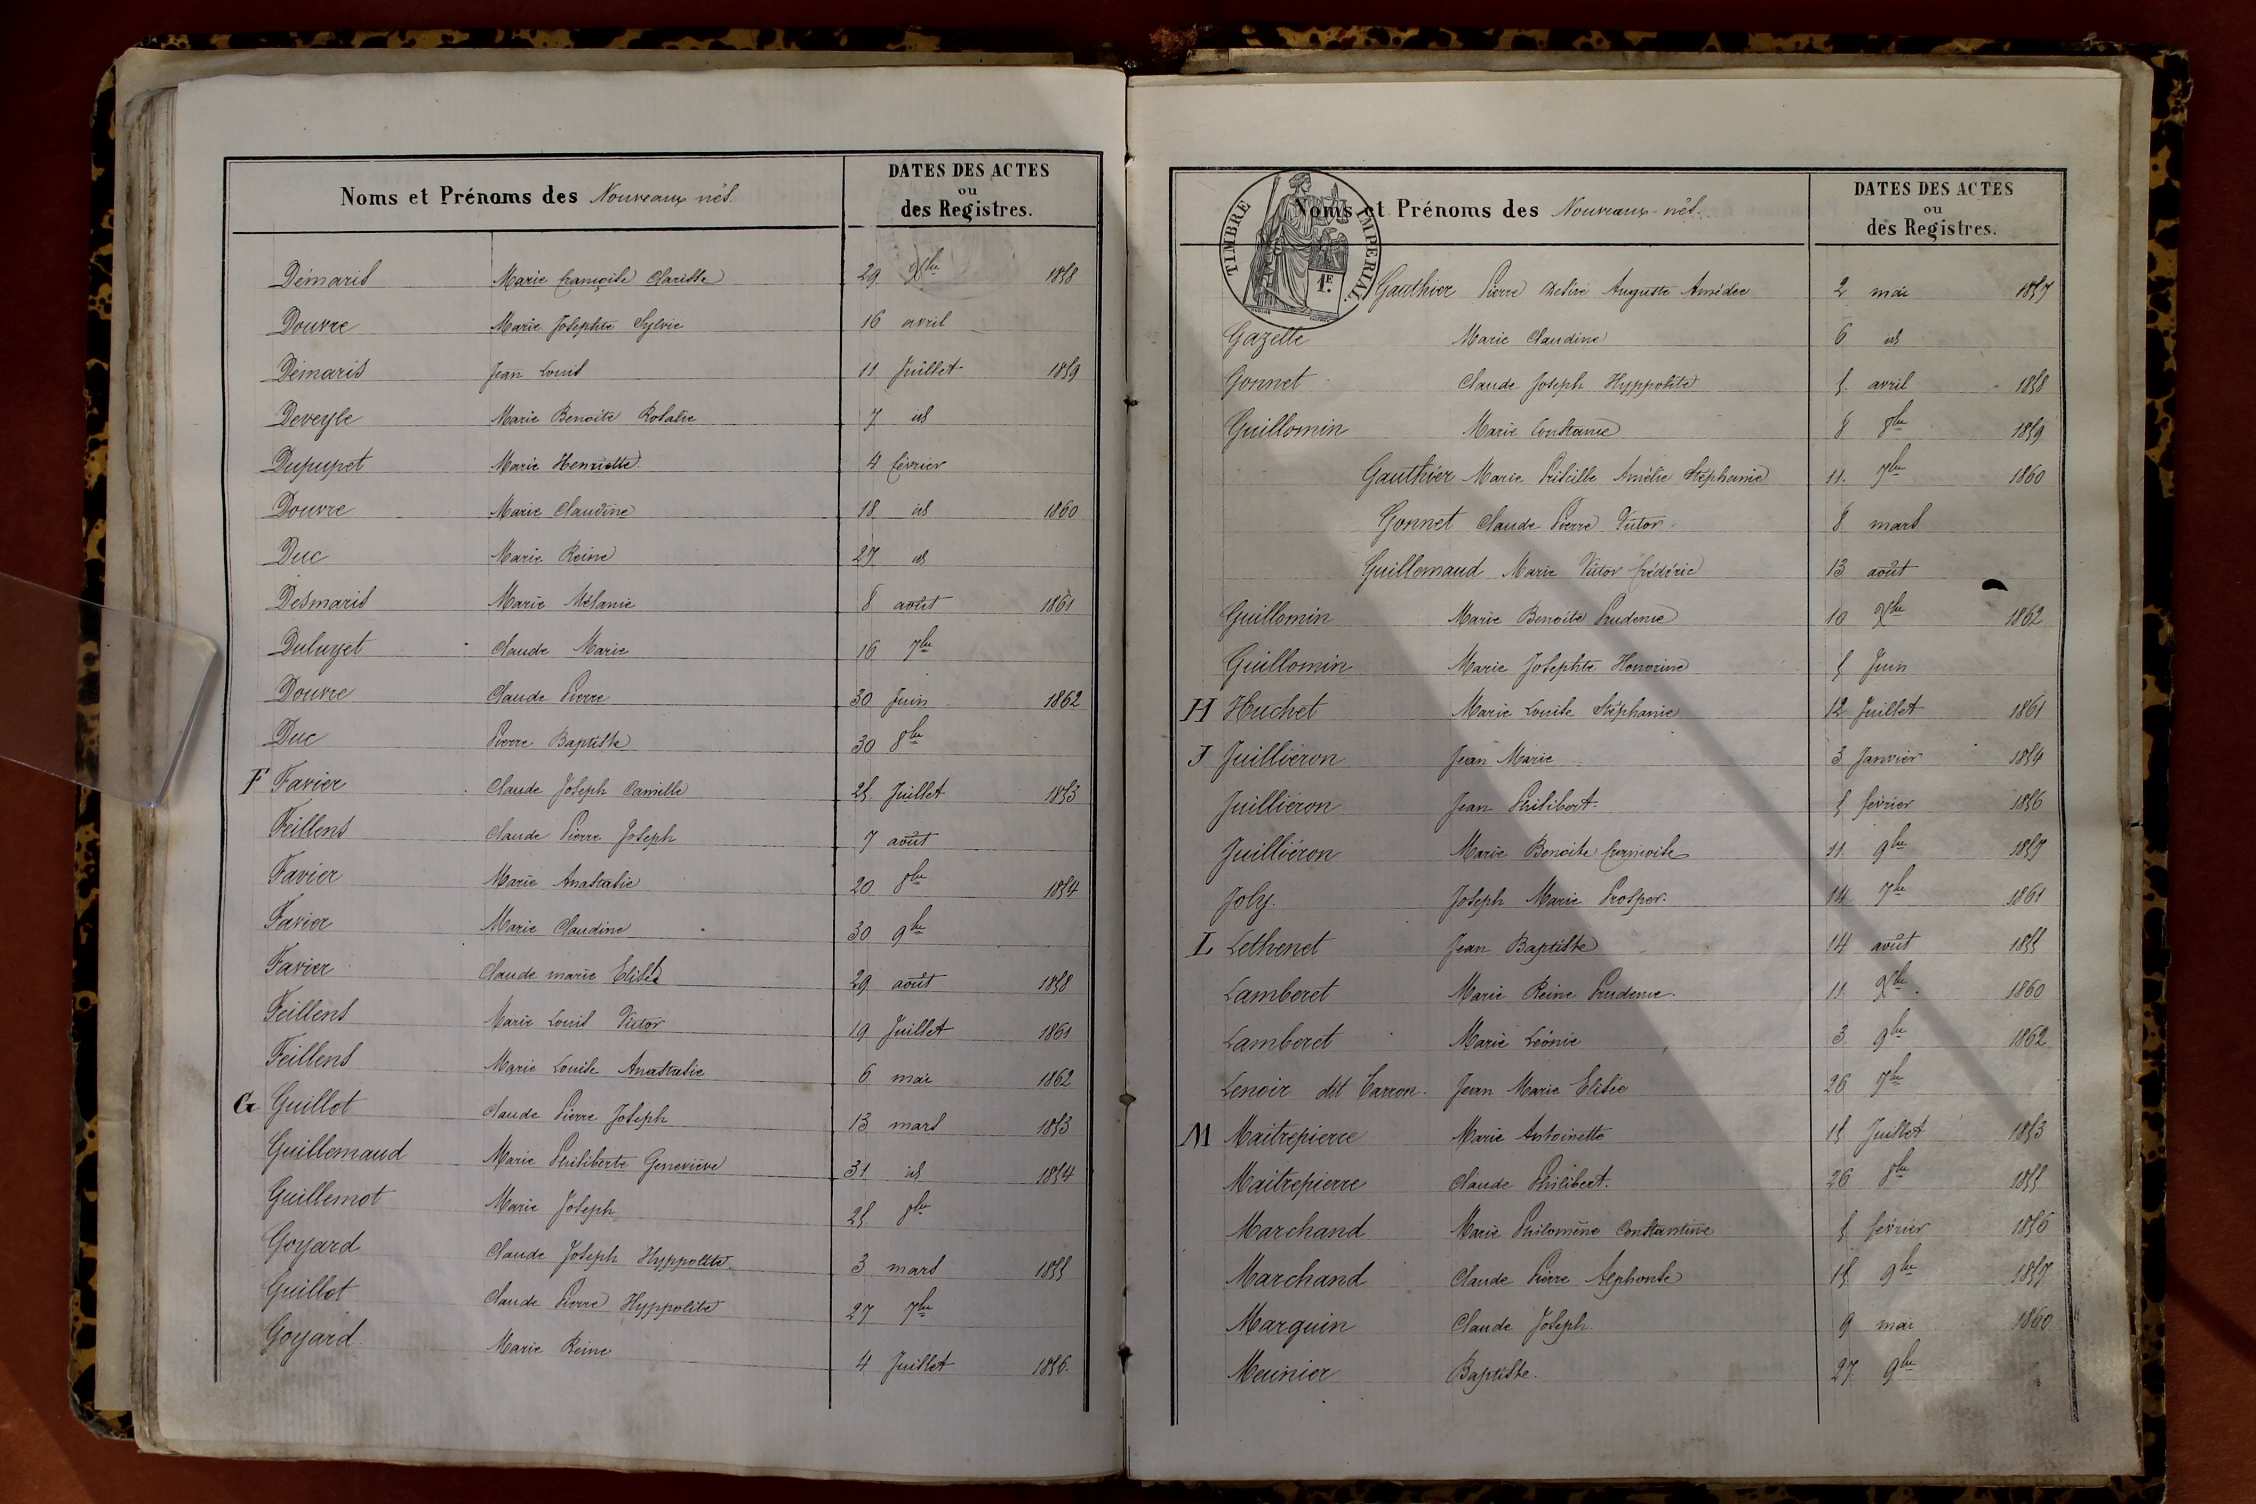 Noms et Prénoms des Nouveaux nés.
DATES DES ACTES
ou
des Registres.
Démaris Marie françoise Clarisse 29 Xbre 1858
Douvre Marie Josephte Sylvie 16 avril
Démaris Jean Louis 11 Juillet 1859
Deveyle Marie Benoite Rosalie 7 id
Dupupet Marie Henriette 4 février
Douvre Marie Claudine 18 id 1860
Duc Marie Reine 27 id
Desmaris Marie Mélanie 8 août 1861
Duluyet Claude Marie 16 7bre
Douvre Claude Pierre 30 Juin 1862
Duc Pierre Baptiste 30 8bre
F Favier Claude Joseph Camille 25 Juillet 1853
Feillens Claude Pierre Joseph 7 août
Favier Marie Anastasie 20 8bre 1854
Favier Marie Claudine 30 9bre
Favier Claude marie Elisée 29 août 1858
Feillens Marie Louis Victor 19 Juillet 1861
Feillens Marie Louise Anastasie 6 mai 1862
G Guillot Claude Pierre Joseph 13 mars 1853
Guillemaud Marie Philiberte Geneviève 31 id 1854
Guillemot Marie Joseph 25 8bre
Goyard Claude Joseph Hyppolite 3 mars 1855
Guillot Claude Pierre Hyppolite 27 7bre
Goyard Marie Reine 4 Juillet 1856.
TIMBRE IMPERIAL.
1E.
Noms et Prénoms des Nouveaux-nés.
DATES DES ACTES
ou
des Registres.
Gauthier Pierre Desiré Auguste Amédée 2 mai 1857
Gazelle Marie Claudine 6 id
Gonnet Claude Joseph Hyppolite 5 avril 1858
Guillomin Marie Constance 8 8bre 1859
Gauthier Marie Priscille Amélie Stéphanie 11 7bre 1860
Gonnet Claude Pierre Victor 8 mars
Guillemaud Marie Victor frédéric 13 août
Guillomin Marie Benoite Prudence 10 Xbre 1862
Guillomin Marie Josephte Honorine 5 Juin
H Huchet Marie Louise Stéphanie 12 Juillet 1861
J Juilliéron Jean Marie 3 Janvier 1854
Juilliéron Jean Philibert 5 février 1856
Juilliéron Marie Benoite françoise 11 9bre 1857
Joly. Joseph Marie Prosper. 14 7bre 1861
L Lethenet Jean Baptiste 14 août 1855
Lamberet Marie Reine Prudence. 11 Xbre. 1860
Lamberet Marie Léonie 3 9bre 1862
Lenoir dit Carron. Jean Marie Elisée 26 7bre
M Maitrepierre Marie Antoinette 15 Juillet 1853
Maitrepierre Claude Philibert. 26 8bre 1855
Marchand Marie Philomène Constantine 5 février 1856
Marchand Claude Pierre Alphonse 15 9bre 1857
Marguin Claude Joseph 9 mai 1860
Meunier Baptiste. 27 9bre